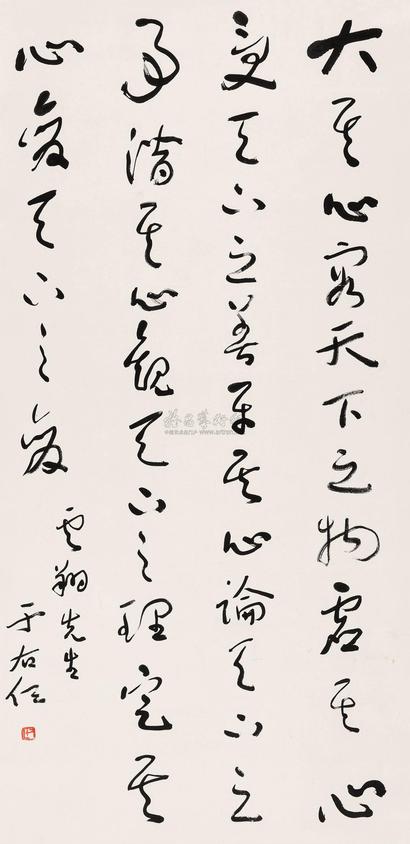 大其心容天下之物虚其心
受天下之善平其心論天下之
事潛其心觀天下之理定其
心應天下之變
雲翔先生
于右任